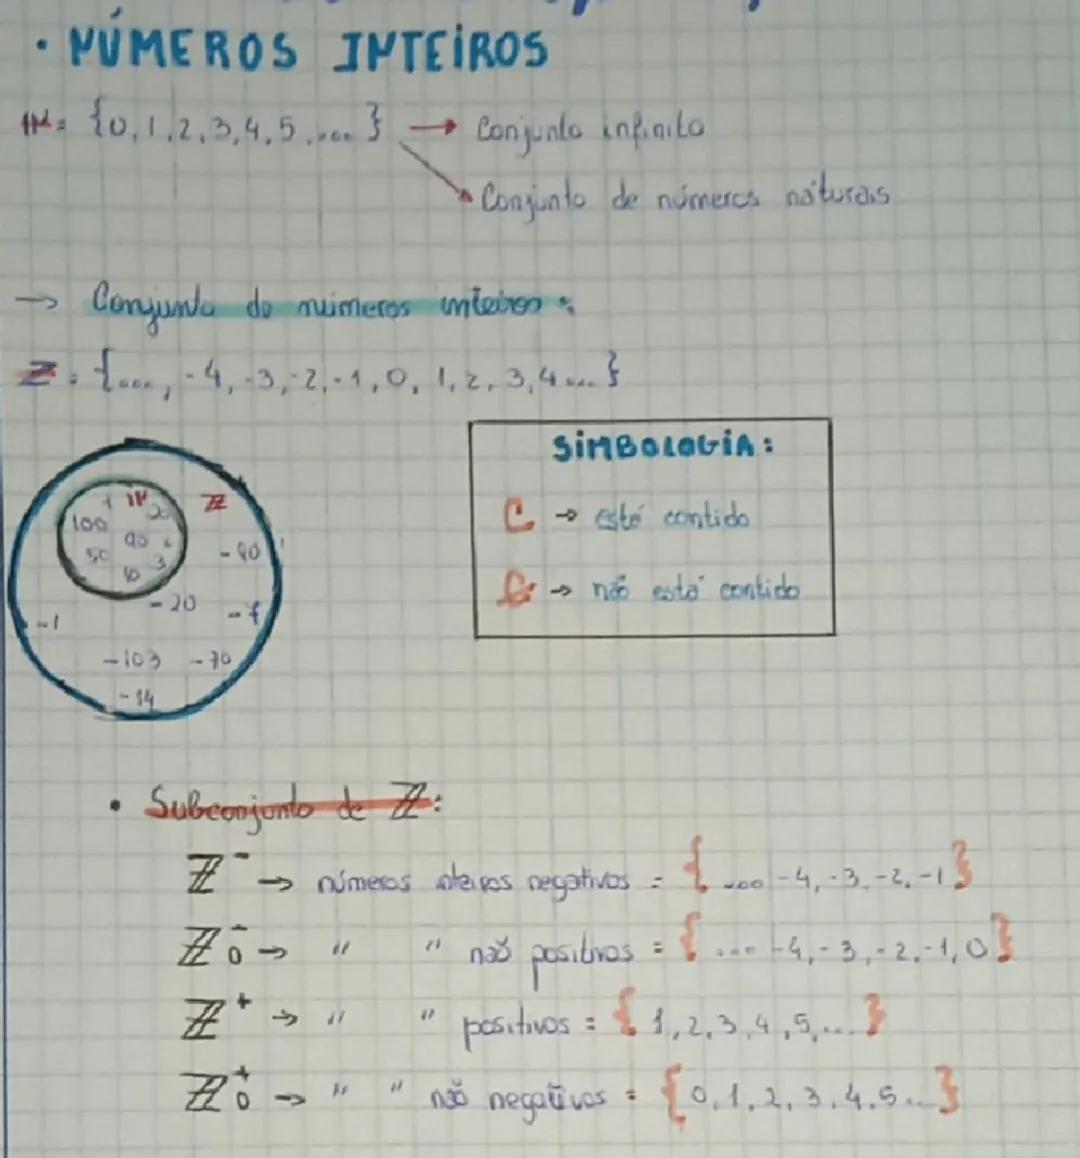 • NÚMEROS INTEIROS
IN = {0, 1, 2, 3, 4, 5, ... } → Conjunto infinito
→ Conjunto de números naturais
→ Conjunto de números inteiros:
Z = {..., -4, -3, -2, -1, 0, 1, 2, 3, 4 ... }
SIMBOLOGIA:
⊂ → está contido
⊄ → não está contido
IN Z
100 20
90
50 3
10
-90
-20
-1
-103 -70
-14
• Subconjunto de Z:
Z⁻ → números inteiros negativos = { ... -4, -3, -2, -1}
Z₀⁻ → " " não positivos = { ... -4, -3, -2, -1, 0}
Z⁺ → " " positivos = {1, 2, 3, 4, 5, ... }
Z₀⁺ → " " não negativos = {0, 1, 2, 3, 4, 5 ... }